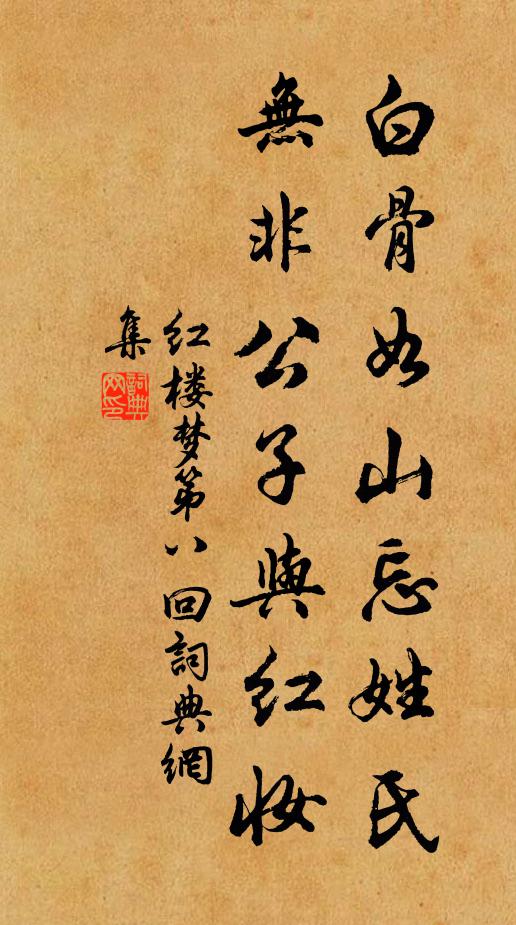 白骨如山忘姓氏
無非公子與红妝
红楼梦第八回詞典網
集
詞典
网印